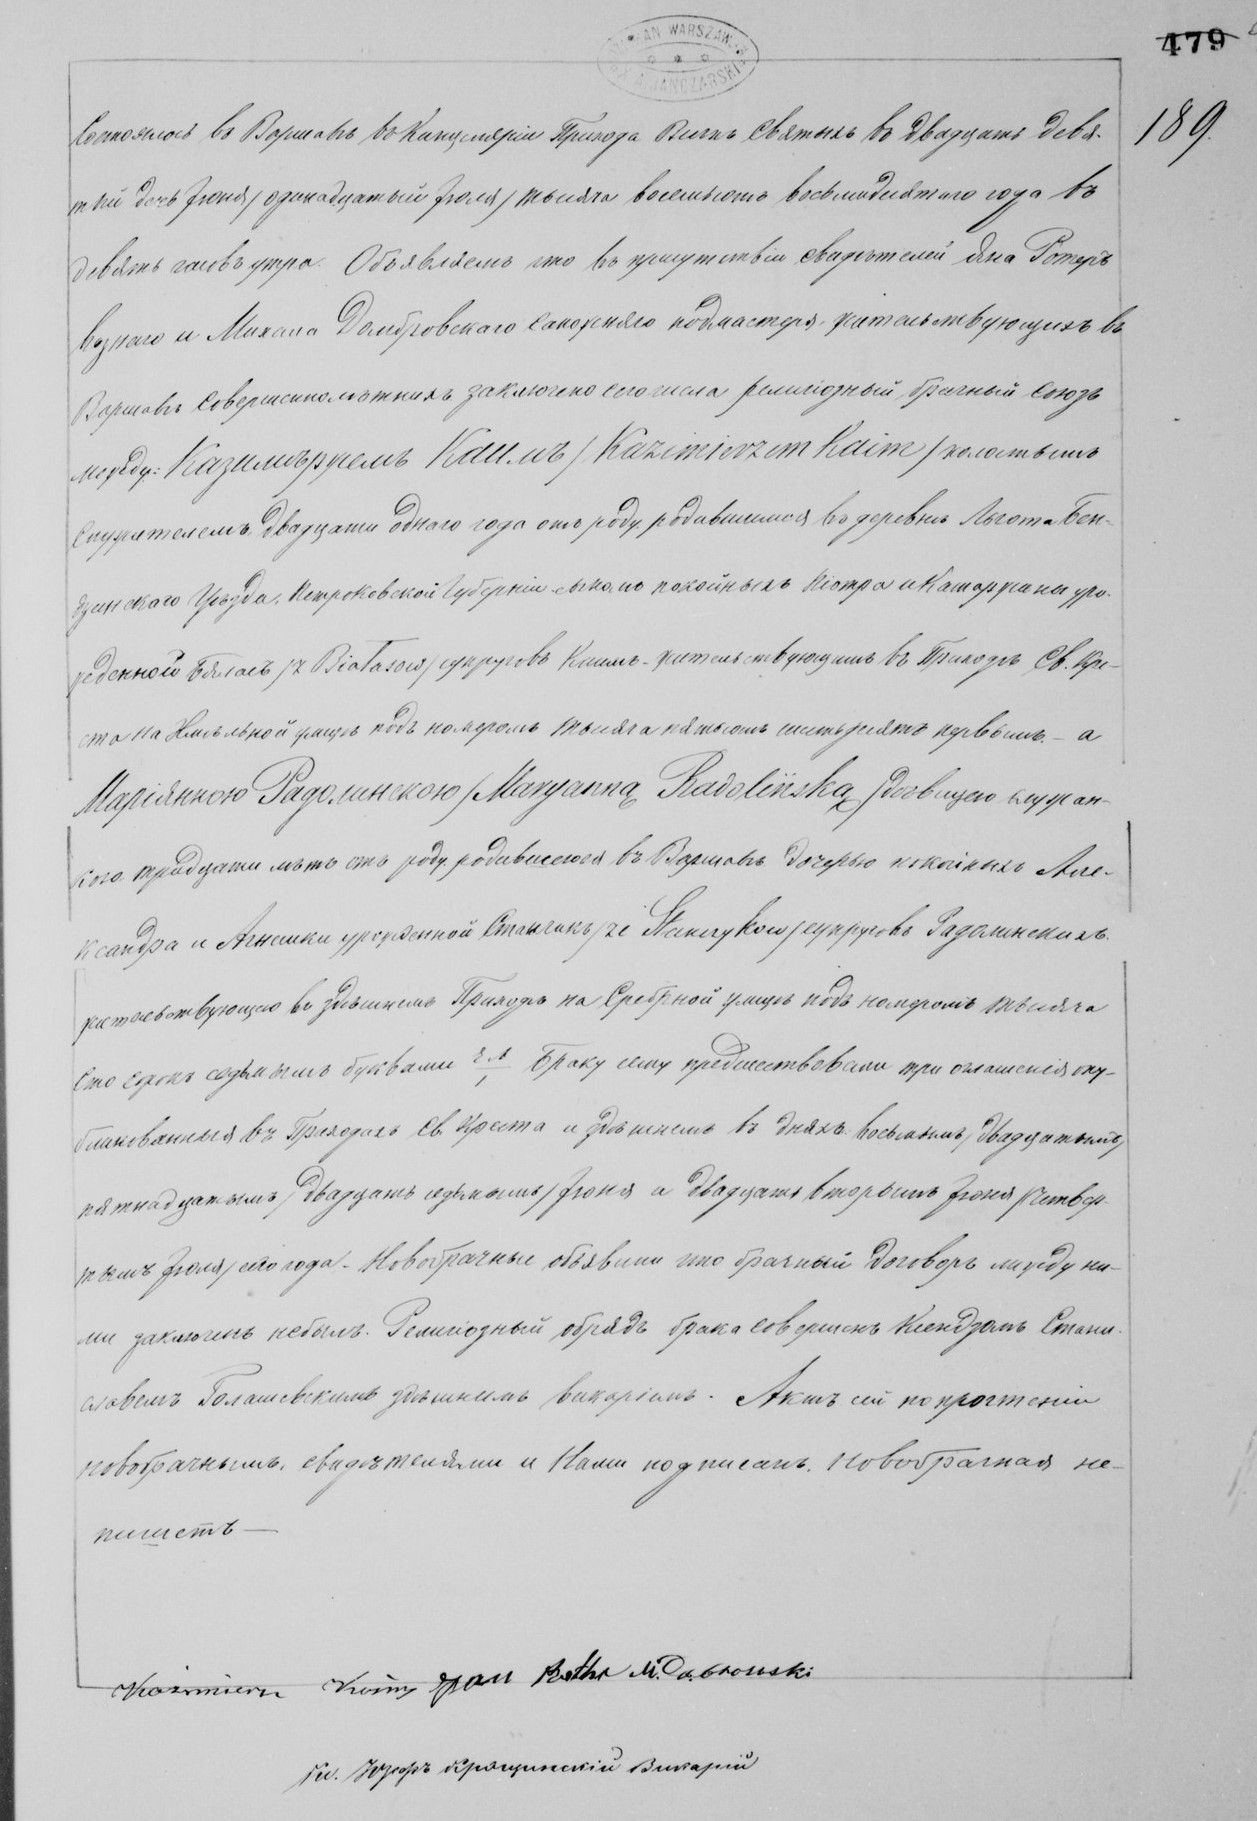 DZIEKAN WARSZAWSKI
X. A. JANCZARSKI
479
189.
Состоялось въ Варшавѣ въ Канцеляріи Прихода Всѣхъ Святыхъ въ двадцать девя-
тый день Іюня/одинадцатый Іюля/тысяча восемьсотъ восьмидесятаго года въ
девять часовъ утра. Объявляемъ что въ присутствіи свидѣтелей Яна Ротеръ
вознаго и Михала Домбровскаго сапожняго подмастеря, жительствующихъ въ
Варшавѣ совершеннолѣтнихъ заключено сего числа религіозный брачный союзъ
между: Казимѣржемъ Каимъ /Kazimierzem Kaim/ холостымъ
служителемъ двадцати одного года отъ роду, родившимся въ деревнѣ Лгота Бен-
дзинскаго Уѣзда, Петроковской Губерніи, сыномъ покойныхъ Піотра и Катаржины уро-
жденной Бяласъ /z Białasów/ супруговъ Каимъ, жительствующимъ въ Приходѣ Св. Кре-
ста на улицѣ подъ номеромъ тысяча пятьсотъ шестьдесятъ первымъ. - а
Маріянною Радолинскою /Maryanną Radolińską/ дѣвицею служан-
кою тридцати лѣтъ отъ роду, родившеюся въ Варшавѣ дочерью покойныхъ Але-
ксандра и Агнешки урожденной Станчикъ /ze Stańczyków/ супруговъ Радолинскихъ.
жительствующею въ здѣшнемъ Приходѣ на Сребрной улицѣ подъ номеромъ тысяча
сто сорокъ седьмымъ буквами Браку сему предшествовали три оглашенія опу-
бликованныя въ Приходахъ Св. Креста и здѣшнемъ въ дняхъ: восьмымъ/двадцатымъ/
пятнадцатымъ/двадцать седьмымъ/Іюня а двадцать вторымъ Іюня/четвер-
тымъ Іюля/сего года. Новобрачные объявили что брачный договоръ между ни-
ми заключенъ небылъ. Религіозный обрядъ брака совершенъ Ксендзомъ Стани-
славомъ Голашевскимъ здѣшнимъ викаріемъ. Актъ сей по прочтеніи
новобрачнымъ, свидѣтелями и Нами подписанъ. Новобрачная не-
пишетъ
Kazimierz Kaim Jan Rother M. Dąbrowski
Кс. Юзефъ Крощинскій Викарій